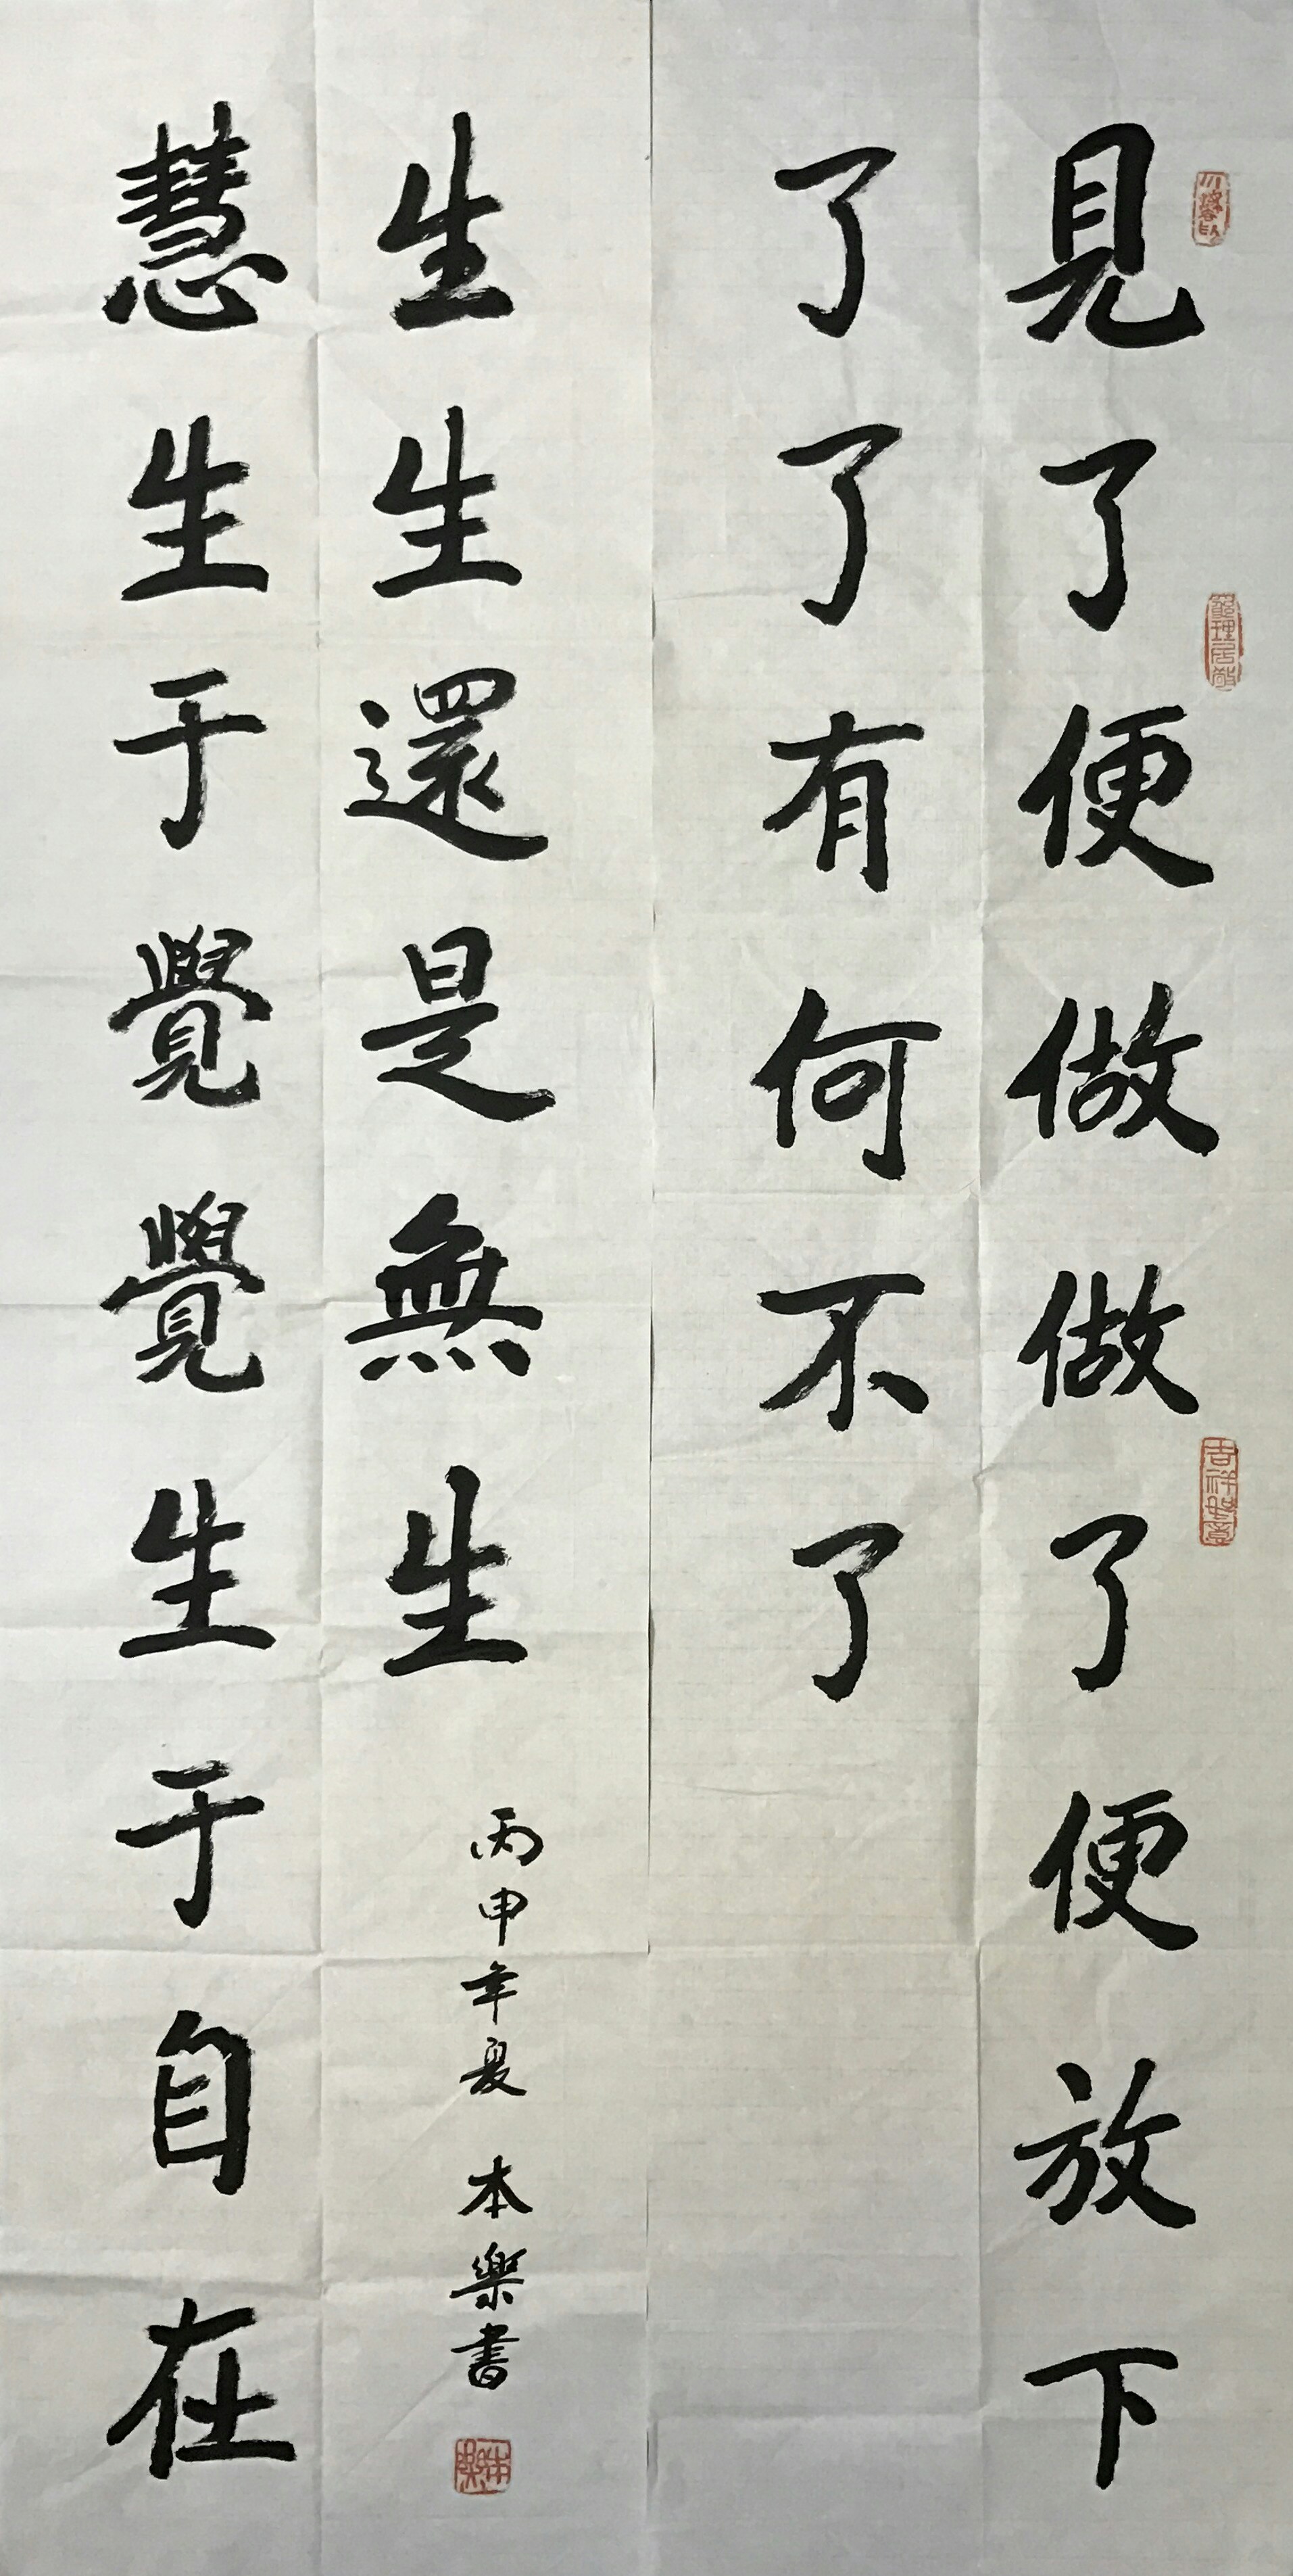 見了便做做了便放下
了了有何不了
慧生于覺覺生于自在
生生還是無生
丙申年夏 本樂書
窮理居敬
吉祥如意